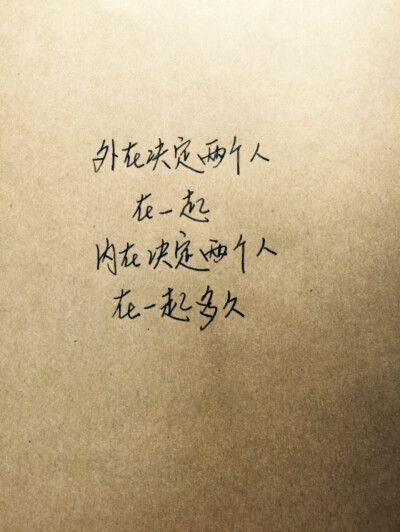 外在决定两个人
在一起
内在决定两个人
在一起多久